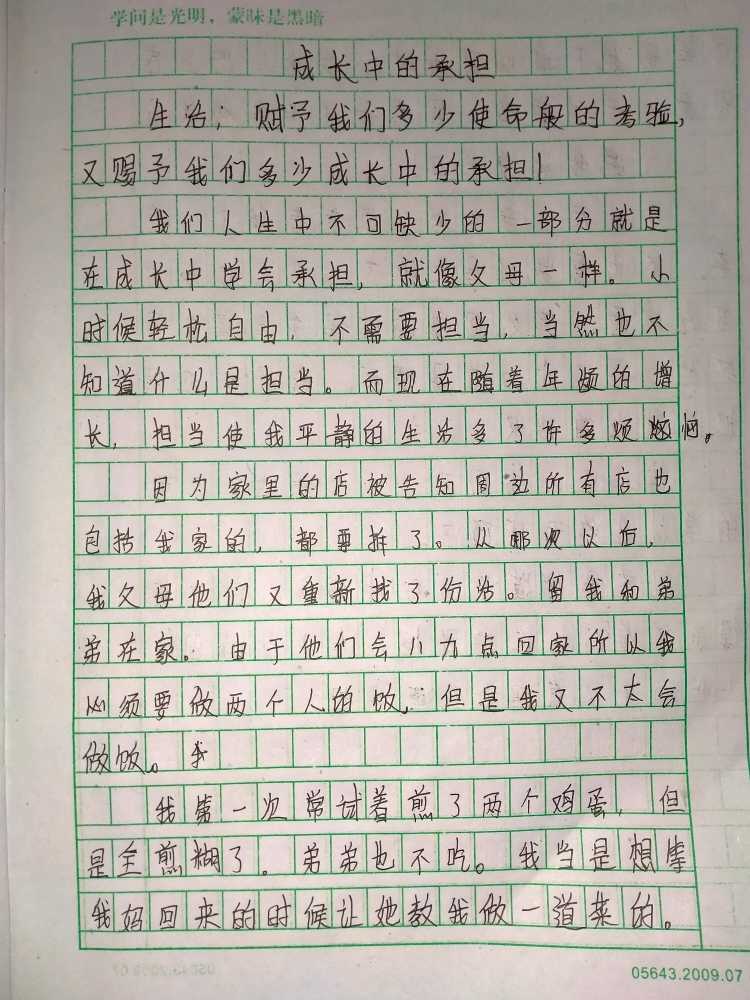 学问是光明，蒙昧是黑暗
成长中的承担
生活；赋予我们多少使命般的考验，
又赐予我们多少成长中的承担！
我们人生中不可缺少的一部分就是
在成长中学会承担，就像父母一样。小
时候轻松自由，不需要担当，当然也不
知道什么是担当。而现在随着年龄的增
长，担当使我平静的生活多了许多烦恼。
因为家里的店被告知周边所有店也
包括我家的，都要拆了。从那次以后，
我父母他们又重新找了份活。留我和弟
弟在家。由于他们会八九点回家所以我
必须要做两个人的饭，但是我又不太会
做饭。
我第一次常试着煎了两个鸡蛋，但
是全煎糊了。弟弟也不吃。我当是想等
我妈回来的时候让她教我做一道菜的。
05643.2009.07
05643.2009.07